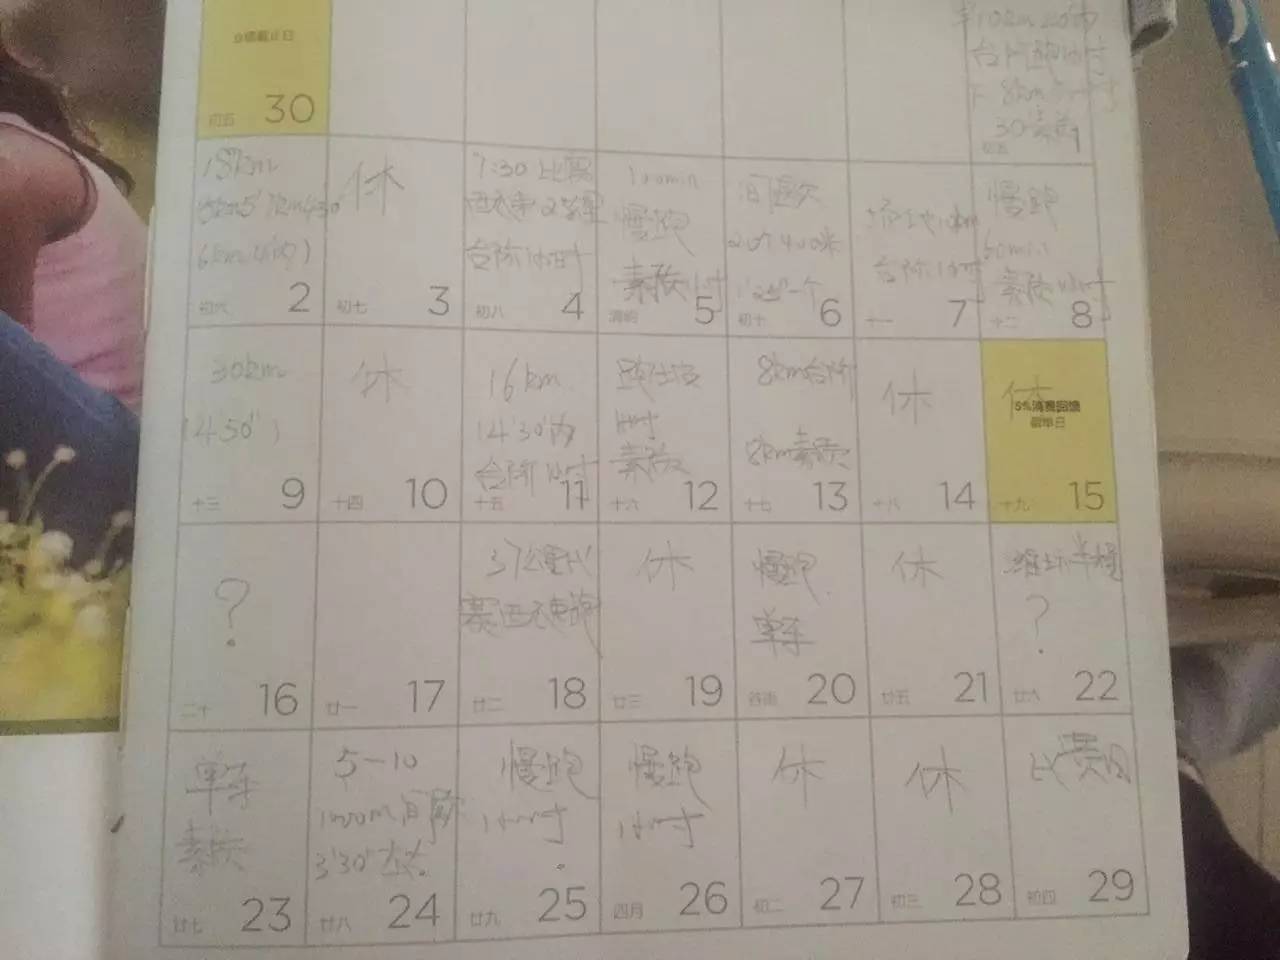 30
初五
10km
台阶跑1小时
8km
30素质
1
18km
6km
初六 2
休
初七 3
7:30 比赛
台阶1小时
初八 4
100min
慢跑
素质1小时
清明 5
间歇
20个400米
初十 6
场地10km
台阶1小时
十一 7
慢跑
60min
素质1小时
十二 8
30km
(4'50")
十三 9
休
十四 10
16km
(4'30"内
台阶1小时
十五 11
素质
十六 12
8km台阶
8km素质
十七 13
休
十八 14
休
5%消费回馈
十九 15
?
二十 16
廿一 17
37公里代
赛
廿二 18
休
廿三 19
慢跑
单车
谷雨 20
休
廿五 21
潍坊半程
?
廿六 22
单车
素质
廿七 23
5-10
1000m间歇
3'30"左右
廿八 24
慢跑
1小时
廿九 25
慢跑
1小时
四月 26
休
初二 27
休
初三 28
比赛日
初四 29